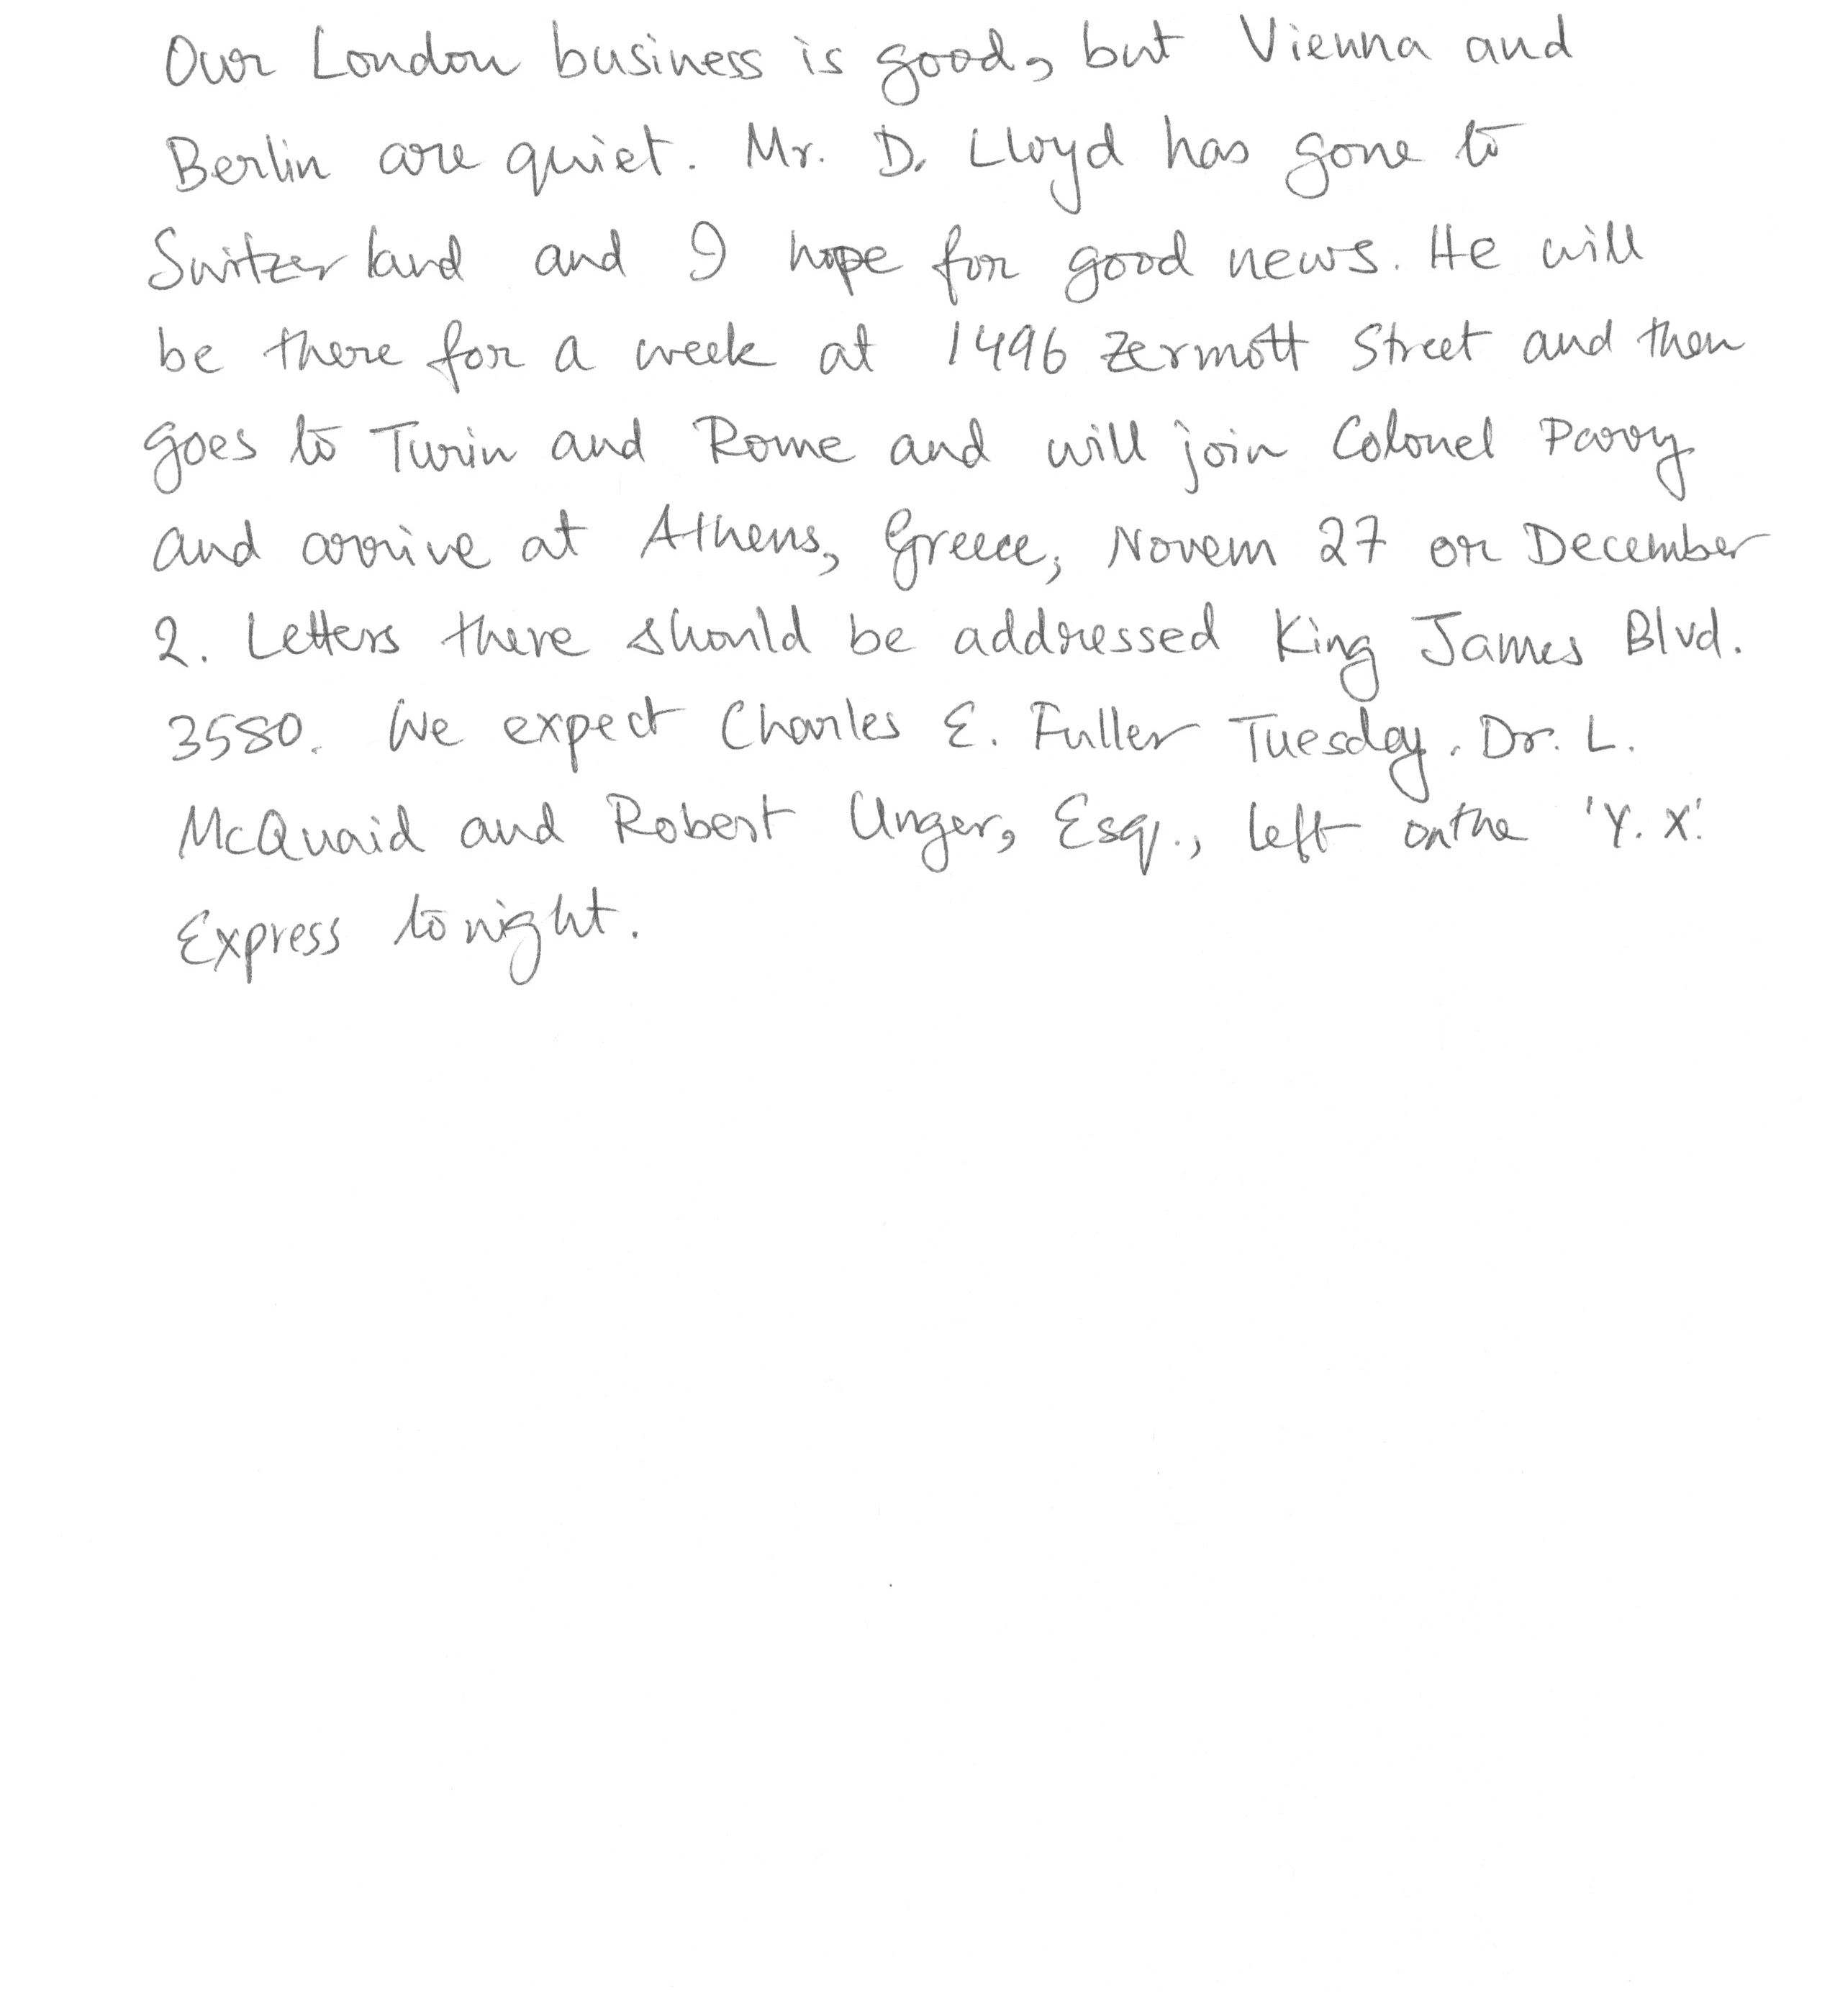 Our London business is good, but Vienna and
Berlin are quiet. Mr. D. Lloyd has gone to
Switzerland and I hope for good news. He will
be there for a week at 1496 Zermott Street and then
goes to Turin and Rome and will join Colonel Parry
and arrive at Athens, Greece, Novem 27 or December
2. Letters there should be addressed King James Blvd.
3580. We expect Charles E. Fuller Tuesday. Dr. L.
McQuaid and Robert Unger, Esq., left on the 'Y. X.'
Express tonight.